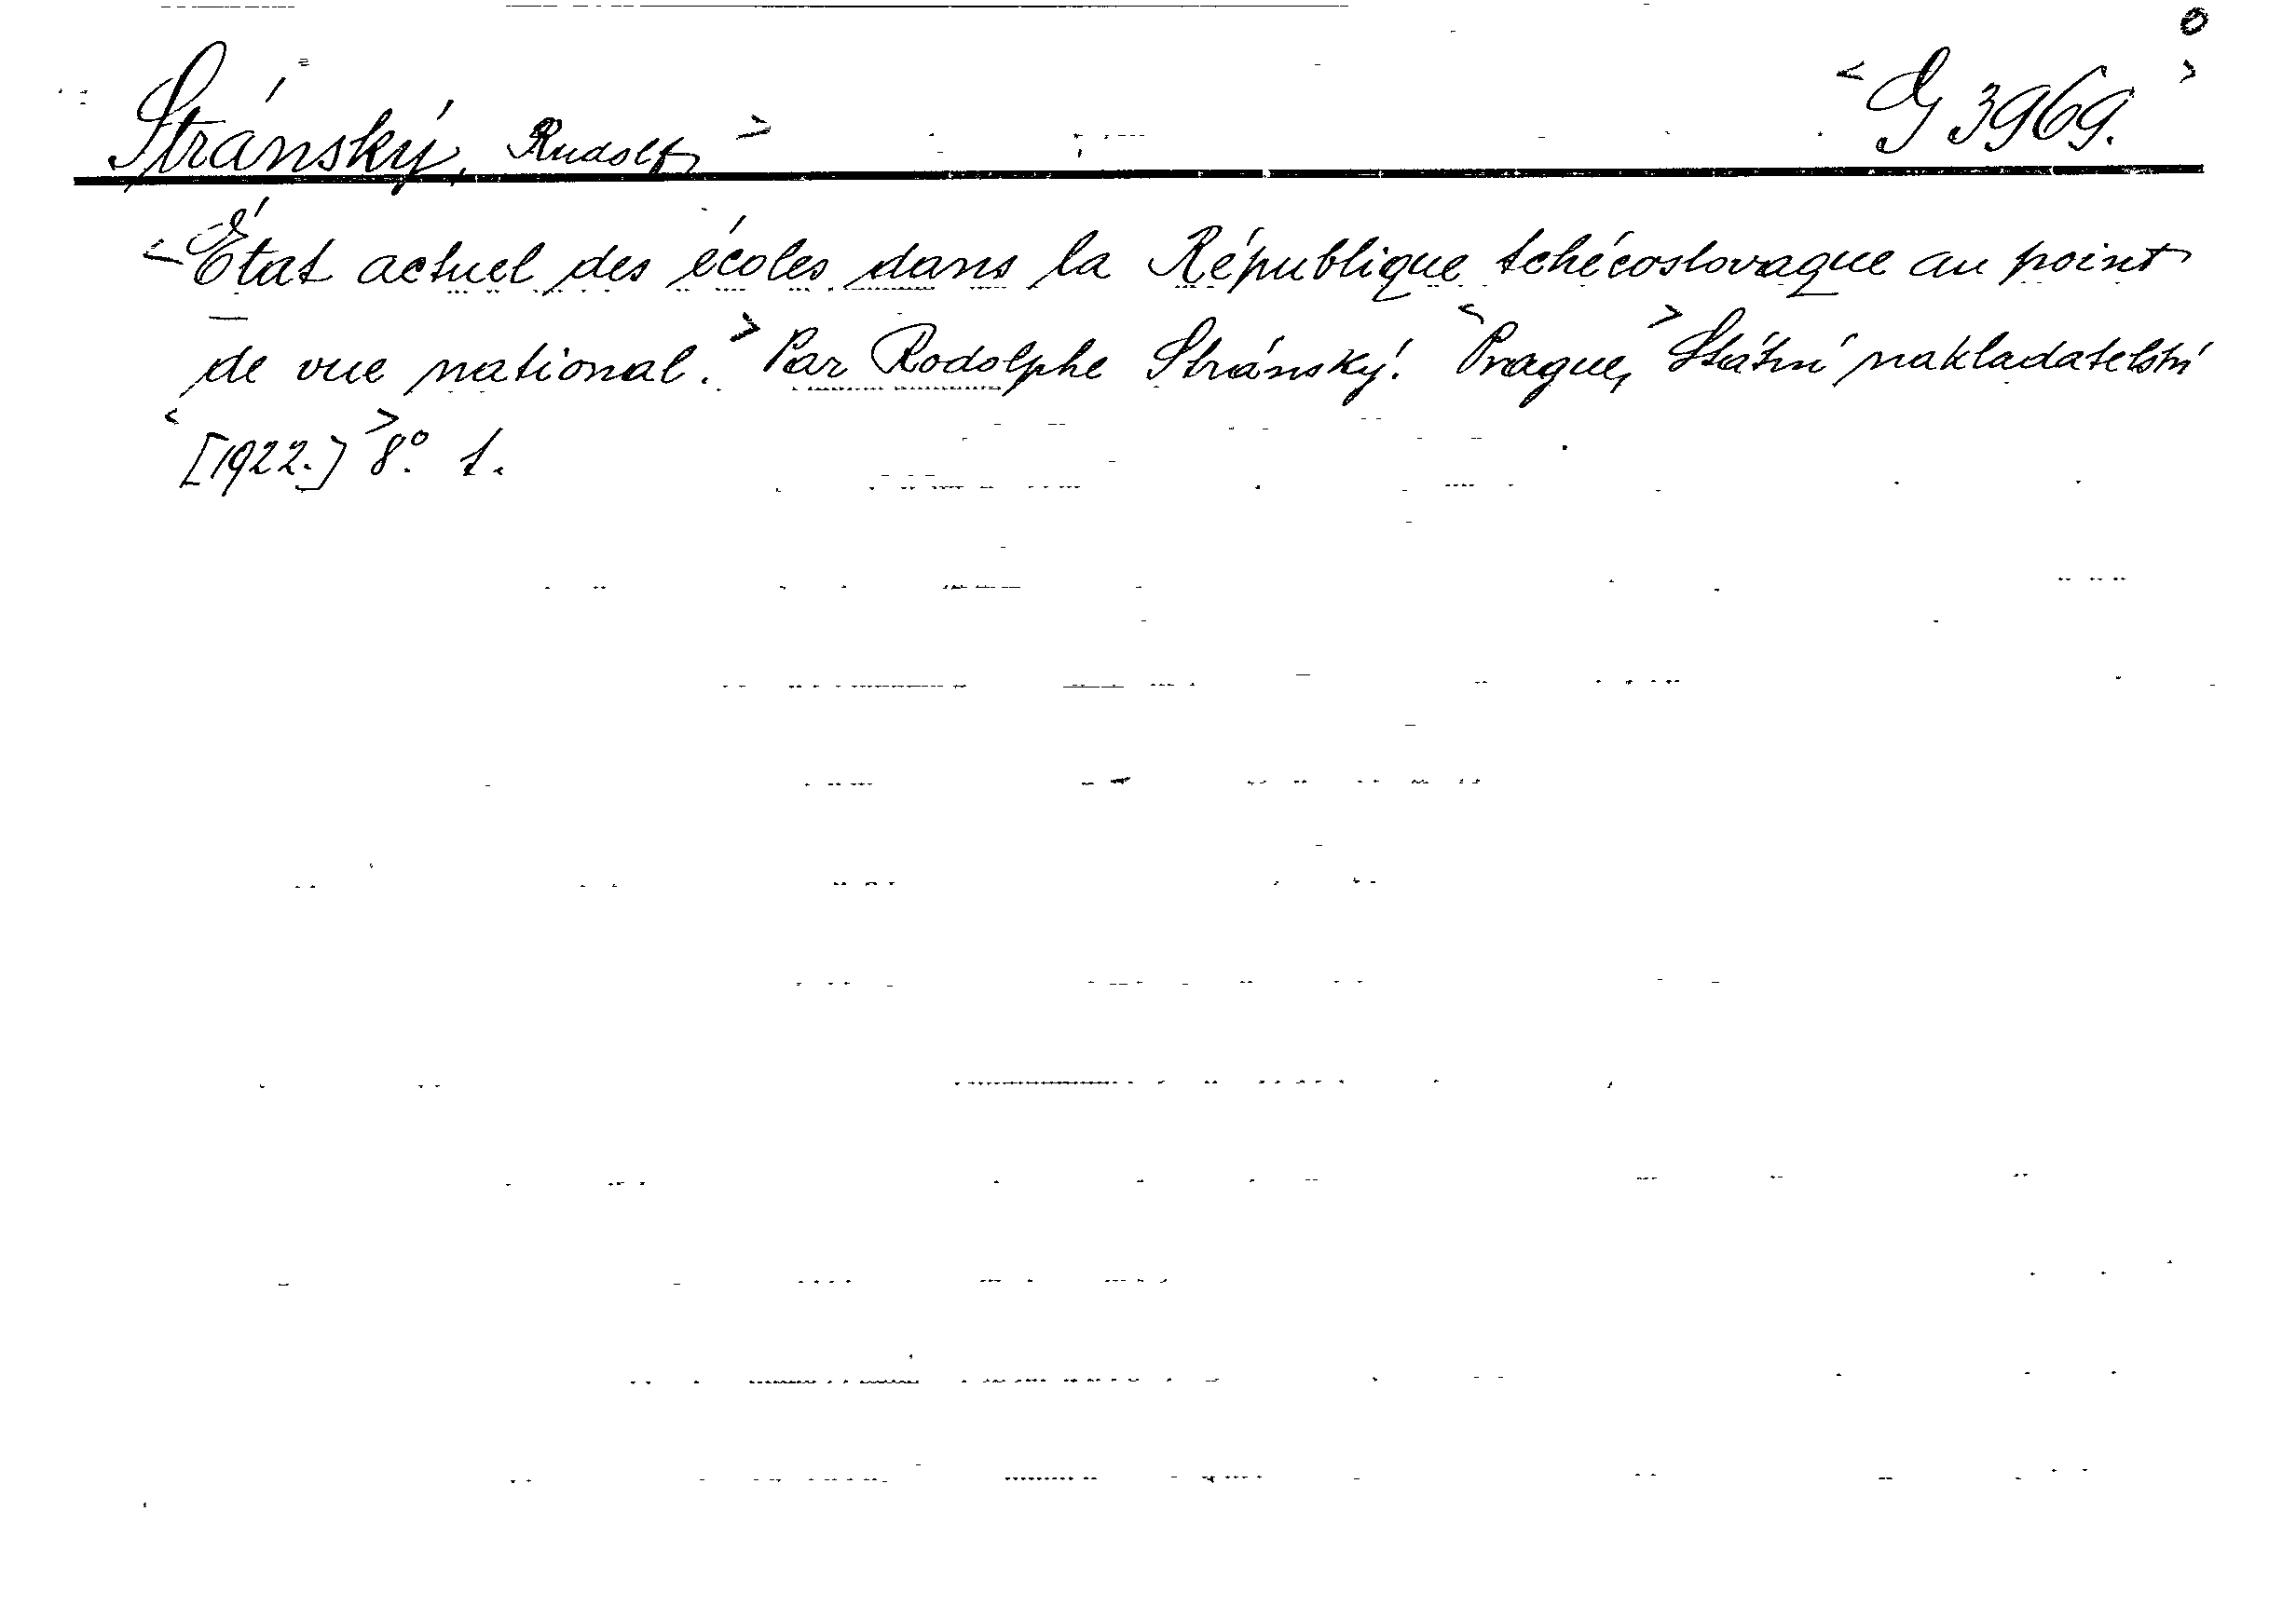 Stránský, Rudolf > < G 3969. >
< État actuel des écoles dans la République tchécoslovaque au point
de vue national. > Par Rodolphe Stránský. < Prague, > Státní nakladatelství
< [1922.] > 8º. 1.